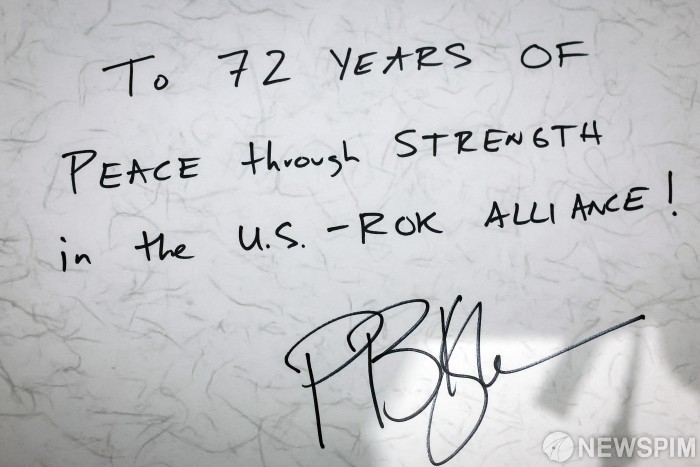 To 72 YEARS OF
PEACE through STRENGTH
in the U.S. - ROK ALLIANCE!
NEWSPIM